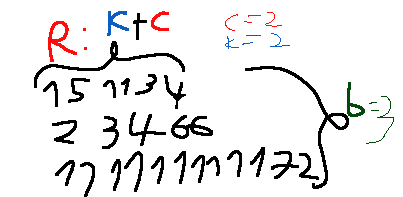 R: K+C
C=2
K=2
15 1134
2 34-66
11 11111111172
b=3